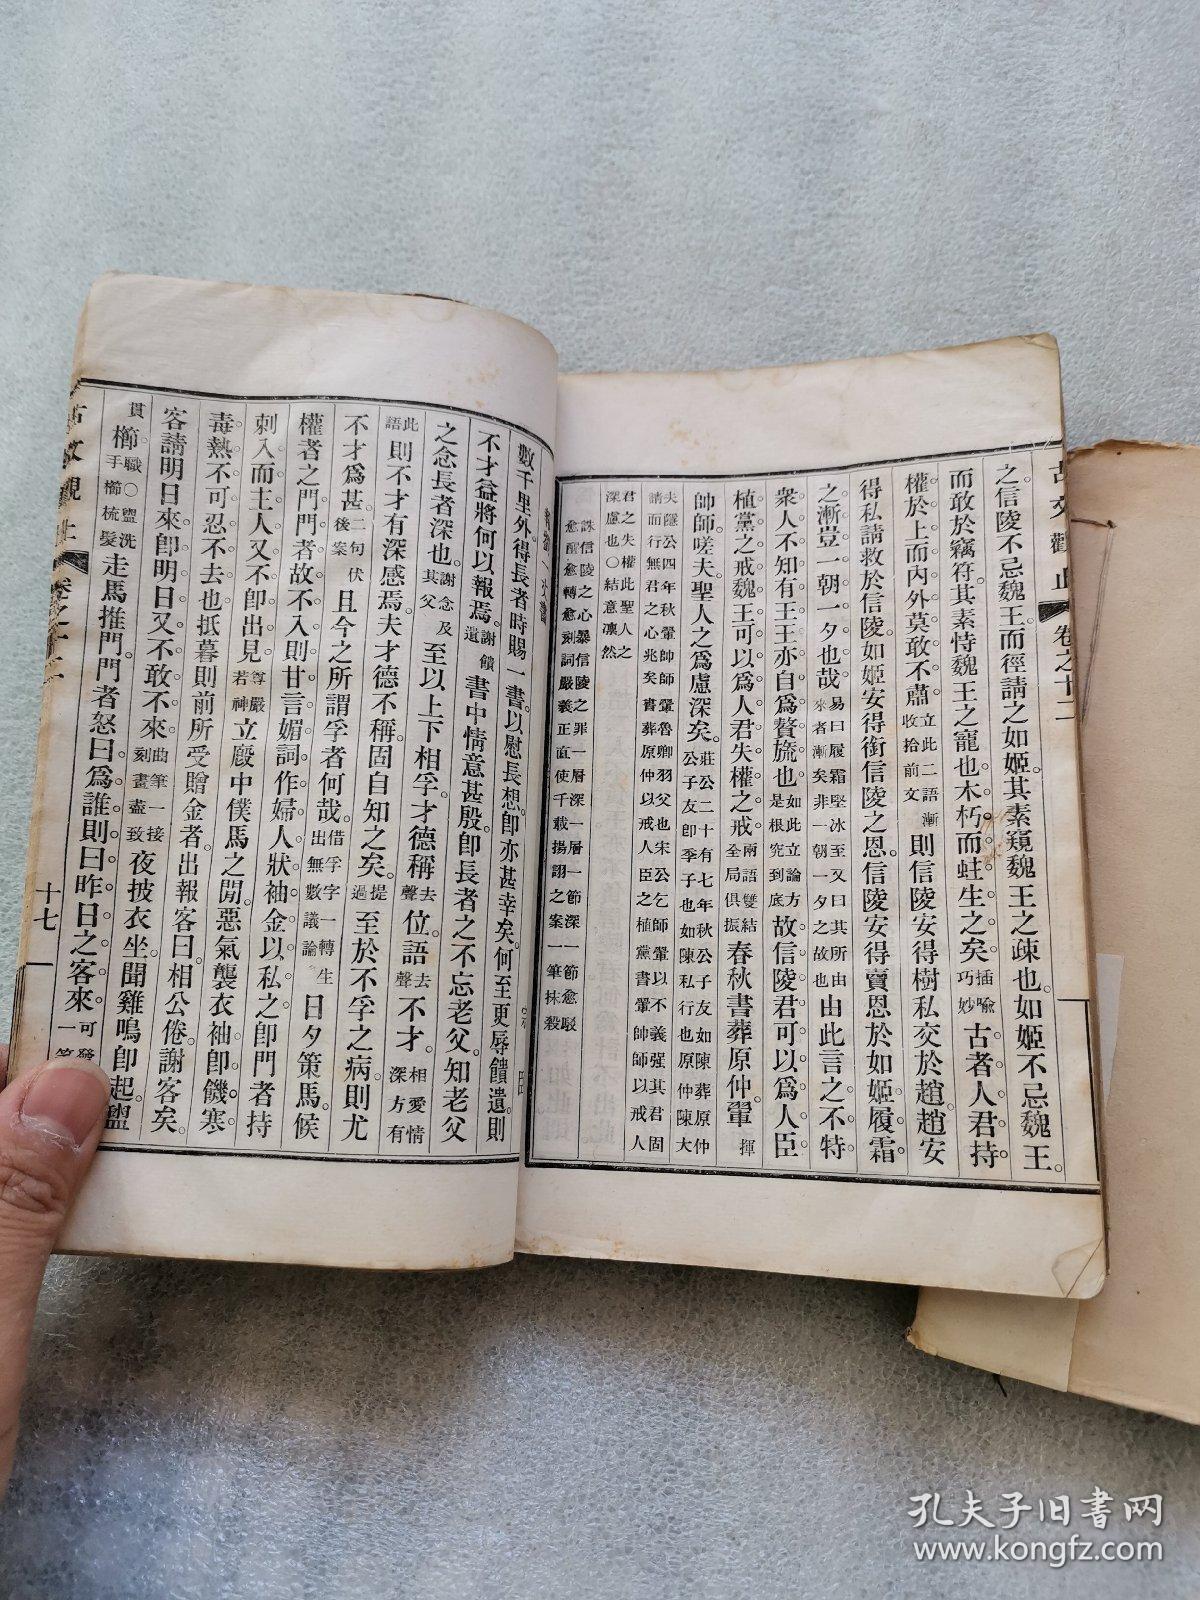 古文觀止 卷之十二
之信陵不忌魏王而徑請之如姬其素窺魏王之疎也如姬不忌魏王
而敢於竊符其素恃魏王之寵也木朽而蛀生之矣插喻巧妙古者人君持
權於上而內外莫敢不肅立此二語漸收拾前文則信陵安得樹私交於趙趙安
得私請救於信陵如姬安得銜信陵之恩信陵安得賣恩於如姬履霜
之漸豈一朝一夕也哉易曰履霜堅冰至又曰其所由來者漸矣非一朝一夕之故也由此言之不特
衆人不知有王王亦自爲贅旒也如此立論方是根究到底故信陵君可以爲人臣
植黨之戒魏王可以爲人君失權之戒兩語雙結全局俱振春秋書葬原仲翬揮
帥師嗟夫聖人之爲慮深矣莊公二十有七年秋公子友如陳葬原仲公子友卽季子也如陳私行也原仲陳大
夫隱公四年秋翬帥師翬魯卿羽父也宋公乞師翬以不義强其君固請而行無君之心兆矣書葬原仲以戒人臣之植黨書翬帥師以戒人
君之失權此聖人之深慮也○結意凜然
誅信陵之心暴信陵之罪一層深一層一節深一節愈駁愈醒愈轉愈刻詞嚴義正直使千載揚詡之案一筆抹殺
數千里外得長者時賜一書以慰長想卽亦甚幸矣何至更辱饋遺則
不才益將何以報焉謝饋遺書中情意甚殷卽長者之不忘老父知老父
之念長者深也謝念及其父至以上下相孚才德稱去聲位語去聲不才相愛情深方有
此語則不才有深感焉夫才德不稱固自知之矣提過至於不孚之病則尤
不才爲甚二句伏後案且今之所謂孚者何哉借孚字一轉生出無數議論日夕策馬候
權者之門門者故不入則甘言媚詞作婦人狀袖金以私之卽門者持
刺入而主人又不卽出見尊嚴若神立廄中僕馬之閒惡氣襲衣袖卽饑寒
毒熱不可忍不去也抵暮則前所受贈金者出報客曰相公倦謝客矣
客請明日來卽明日又不敢不來曲筆一接刻畫盡致夜披衣坐聞雞鳴卽起盥
貫櫛職○盥洗手櫛梳髮走馬推門門者怒曰爲誰則曰昨日之客來
古文觀止 卷之十二
十七
孔夫子旧书网
www.kongfz.com